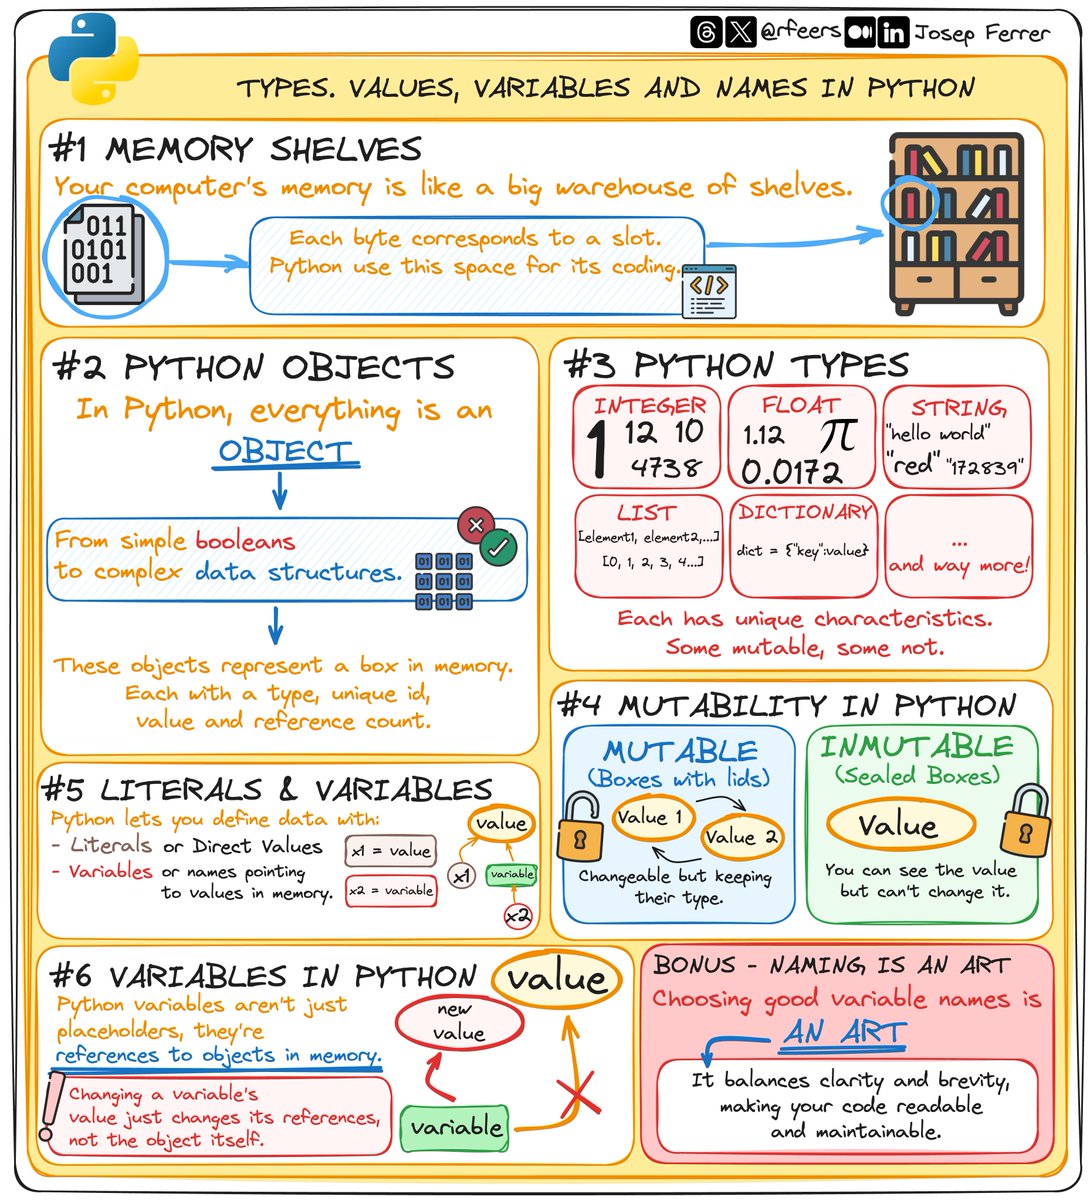 @rfeers Josep Ferrer
TYPES. VALUES, VARIABLES AND NAMES IN PYTHON
#1 MEMORY SHELVES
Your computer's memory is like a big warehouse of shelves.
011
0101
001
Each byte corresponds to a slot.
Python use this space for its coding.
</>
#2 PYTHON OBJECTS
In Python, everything is an
OBJECT
From simple booleans
to complex data structures.
01 01 01
01 01 01
01 01 01
These objects represent a box in memory.
Each with a type, unique id,
value and reference count.
#3 PYTHON TYPES
INTEGER
1 12 10
4738
FLOAT
1.12 π
0.0172
STRING
"hello world"
"red" "172839"
LIST
[element1, element2,...]
[0, 1, 2, 3, 4...]
DICTIONARY
dict = {"key":value}
...
and way more!
Each has unique characteristics.
Some mutable, some not.
#4 MUTABILITY IN PYTHON
MUTABLE
(Boxes with lids)
Value 1
Value 2
Changeable but keeping
their type.
INMUTABLE
(Sealed Boxes)
Value
You can see the value
but can't change it.
#5 LITERALS & VARIABLES
Python lets you define data with:
- Literals or Direct Values
- Variables or names pointing
to values in memory.
x1 = value
x2 = variable
value
x1
variable
x2
#6 VARIABLES IN PYTHON
Python variables aren't just
placeholders, they're
references to objects in memory.
Changing a variable's
value just changes its references,
not the object itself.
value
new
value
variable
BONUS - NAMING IS AN ART
Choosing good variable names is
AN ART
It balances clarity and brevity,
making your code readable
and maintainable.